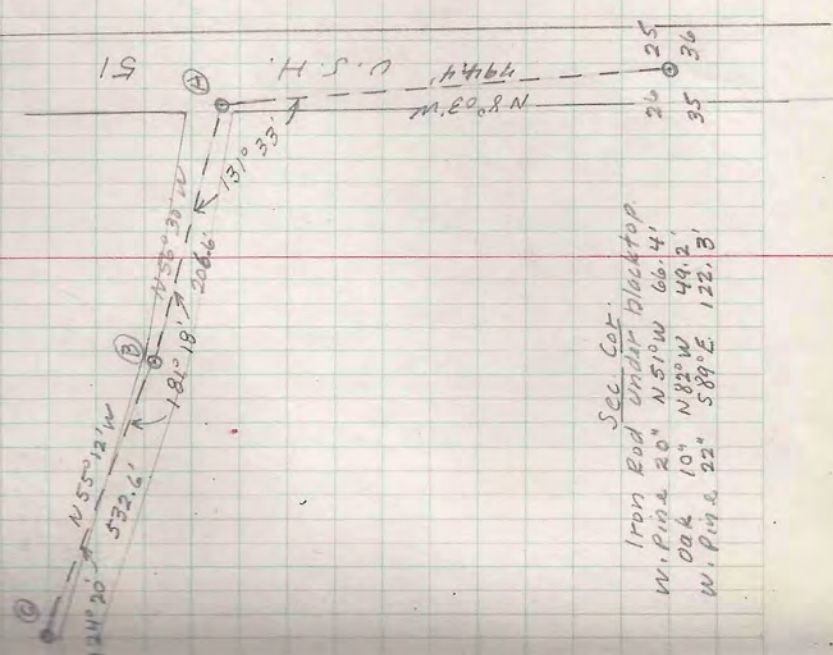 U.S.H. 51
794.4'
N8°03'W
26 25
35 36
A
131°33'
N56°30'W
206.6'
B
181°18'
N55°12'W
532.6'
C
124°20'
Sec. Cor.
Iron Rod under blacktop.
W. Pine 20" N51°W 66.4'
Oak 10" N82°W 49.2'
W. Pine 22" S89°E 122.3'